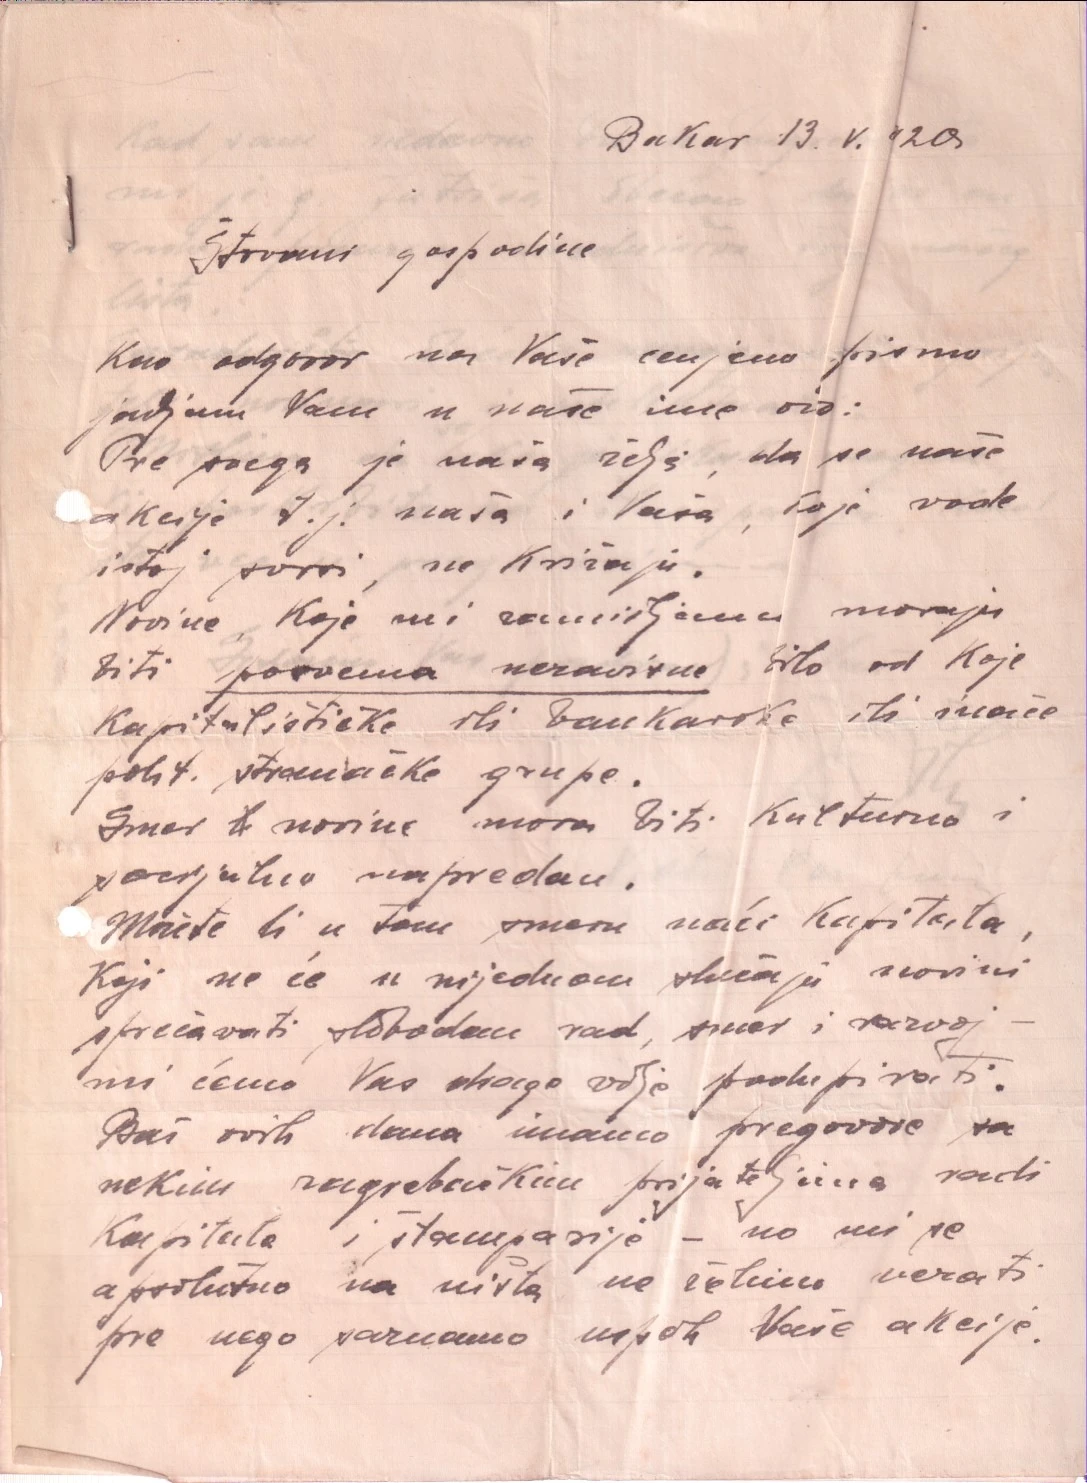 Bakar 13. V. 920
Štovani gospodine
Kao odgovor na Vaše cenjeno pismo
javljam Vam u naše ime ovo:
Pre svega je naša želja, da se naše
akcije t.j. naša i Vaša, koje vode
istoj svrsi, ne križaju.
Novine, koje mi zamišljamo moraju
biti posvema nezavisne bilo od koje
kapitalističke ili bankarske ili inače
polit. stranačke grupe.
Smer te novine mora biti kulturno i
socijalno napredan.
Možete li u tom smeru naći kapitala,
koji ne će u nijednom slučaju novini
sprečavati slobodan rad, smer i razvoj –
mi ćemo Vas drage volje podupirati.
Baš ovih dana imamo pregovore sa
nekim zagrebačkim prijateljima radi
kapitala i štamparije – no mi se
apsolutno na ništa ne želimo vezati
pre nego saznamo uspeh Vaše akcije.